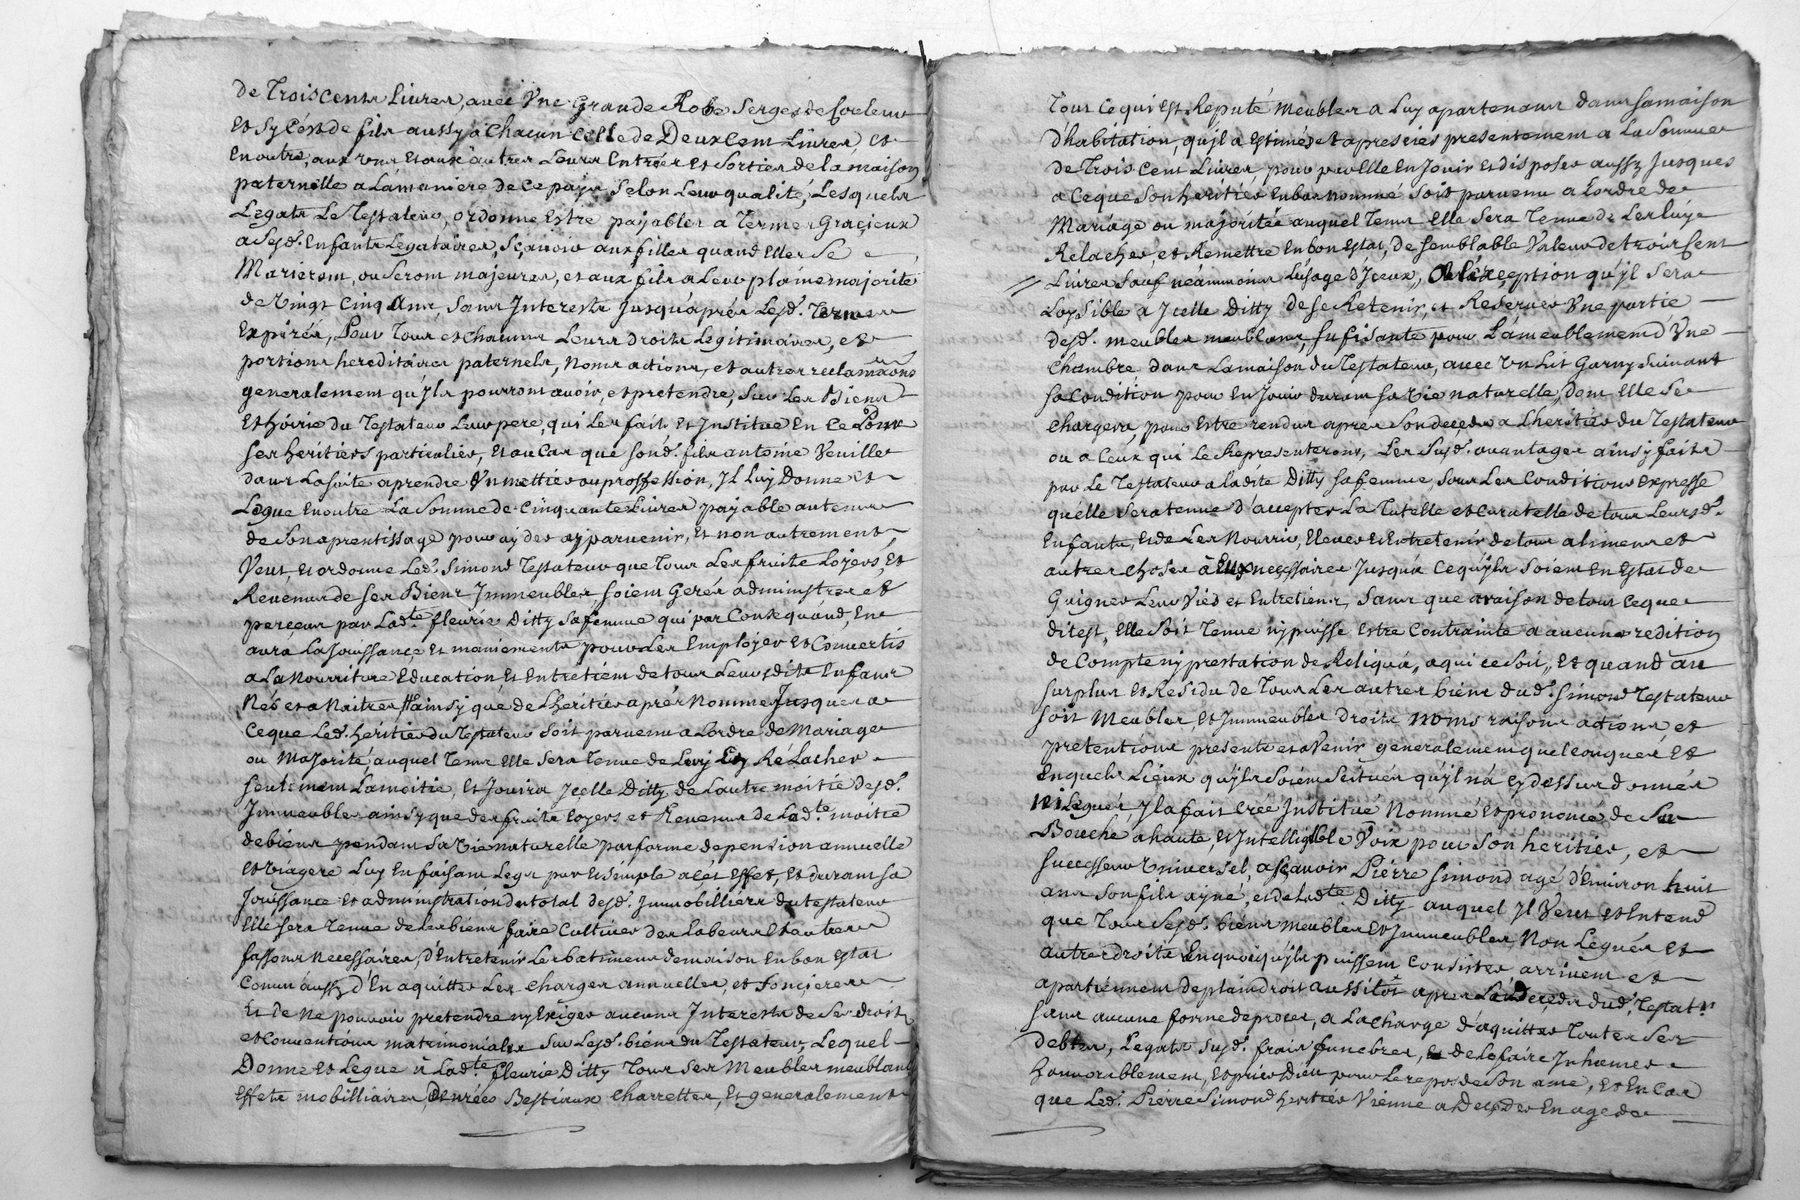 de Trois Cents Livres, avec Une Grande Robe Serges de Couleur
Et Sy C'est de fils aussy à Chacun Celle de Deux Cent Livres, et
En outre, aux uns Et aux autres Leurs Entrées et Sorties de la maison
paternelle a La maniere de Ce pays Selon Leur qualité, Lesquels
Legats Le Testateur, ordonne Estre payables a Termes Graçieux
a Sesd. Enfants Legataires, Sçavoir aux filles quand Elles Se
Marieront, ou Seront majeures, et aux fils a Leur plaine majorité
de Vingt Cinq Ans, Sans Interests Jusqu'aprés Lesd. Termes
Expirés, Pour Tous et Chacuns Leurs droits Legitimaires, et
portions hereditaires paternels, Noms actions, et autres reclamaõns
generalement qu'Ils pourront avoir, et pretendre, Sur Les Biens
Et hoirie du Testateur Leur pere, qui Les fait Et Institue En Ce Pour
Ses heritiers particulier, Et au Cas que Sond. fils antoine Veuille
dans La Suite aprendre Un mettier ou proffession, Il Luy Donne et
Legue En outre La Somme de Cinquante Livres payable au temps
de Son aprentissage pour ayder a y parvenir, Et non autrement,
Veut, Et ordonne Led. Simond Testateur que Tous Les fruits Loyers, Et
Revenus de Ses Biens Immeubles, Soient Gerés administrer et
perçeus par Lad.te fleurie Ditty Sa femme qui par Consequánd, En
aura La Jouissance Et maniements pour Les Employer et Convertis
a La Nourriture Education Et Entretiem de tous Leursdits Enfans
Nés et a Naitres ainsy que de L'heritier aprés Nommé Jusques a
Ceque Led. héritier du Testateur Soit parvenu a Lordre de Mariage
ou Majorité auquel Tems Elle Sera Tenue de Luy Relacher
Seulement La moitié, Et Jouira Icelle Ditty de L'autre moitié desd.
Immeubles ainsy que des fruits Loyers et Revenus de Lad.te moitié
de biens pendant Sa Vie naturelle par forme de pension annuelle
et Viagere Luy En faisant Legs pur Et Simple a Cet Effet, Et durant Sa
Jouissance et administration du total desd. Immobilliers du testateur
Elle Sera Tenue de Les bien faire Cultiver des Labeurs Et autres
fassons necessaires, d'Entretenir Les batimens de maison En bon Estat
Comm' aussy d'En aquitter Les Charges annuelles, et fonçieres
Et de Ne pouvoir pretendre ny Exiger aucuns Interests de Ses droits
et Conventions matrimoniales Sur Lesd. biens du Testateur, Lequel
Donne Et Legue à Lad.te fleurie Ditty Tous Ses Meubles meublans
Effets mobilliaires, Denrées Bestiaux Charrettes, Et generalement
Tout Ce qui Est Reputé Meubles a Luy apartenans dans Sa maison
d'habitation, qu'il a Estimés et apreciés presentement a La Somme
de Trois Cent Livres, pour par Elle En Jouir et disposer aussy Jusques
a Ceque Son heritier En bas nommé Soit parvenu a Lordre de
Mariage ou majoritée auquel Tems Elle Sera Tenue de Les luy
Relacher et Remettre En bon Estat, de Semblable Valeur de trois Cent
Livres Sauf néammoins L'usage d'Iceux, a L'exception qu'il Sera
Loysible a Icelle Ditty de Se Retenir, et Reserver Une partie
desd. meubles meublans, Sufisante pour L'ameublement d'Une
Chambre dans La maison du Testateur, avec Un Lit Garny Suivant
Sa Condition pour En Jouir durant Sa Vie naturelle, dont Elle Se
Chargera, pour Estre rendus aprés Son deçeds a L'heritier du Testateur
ou a Ceux qui Le Representeront, Les Susd. avantages ainsy faits
par Le Testateur a La dite Ditty Sa femme, Sous Les Conditions Expresse
qu'elle Sera tenue d'accepter La Tutelle et Curatelle de tous Leursd.
Enfants, Et de Les Nourrir, Elever Et Entretenir de tous alimens et
autres Choses à Eux necessaires Jusqu'á Ce qu'ils Soient En Estat de
Gaigner Leur Vies et Entretiens, Sans que a raison de tout Ceque
dit est, Elle Soit Tenue ny puisse Estre Contrainte a aucune redition
de Compte ny prestation de Reliquá, a qui ce Soit, Et quand au
Surplus Et Residu de Tous Les autres biens dud. Simond Testateur
Soit Meubles, Et Immeubles droits noms raisons actions et
pretentions presents et a Venir generalement quelconques Et
En quels Lieux qu'ils Soient Scitués qu'il n'a Cy dessus donnés
ni Legués, Il a fait Créé Institué Nommé Et prononcé de Sa
Bouche a haute, Et Intelligible Voix pour Son heritier, et
Successeur Universel, a Sçavoir Pierre Simond agé d'Environ huit
ans Son fils ayné, et de Lad.te Ditty auquel Il Veut Et Entend
que Tous Sesd. biens meubles Et Immeubles Non Legués Et
autres droits En quoi qu'ils puissent Consister arrivent et
apartiennent de plain droit aussitot apres Son deçeds dud. Testat.r
Sans aucune forme de proces, a La Charge d'aquitter Toutes Ses
debtes, Legats Susd. frais funebres, et de Le faire Inhumer
honnorablement, Et prier Dieu pour Le repos de Son ame, Et En Cas
que Led. Pierre Simond heritier Vienne a Deçeder En age de